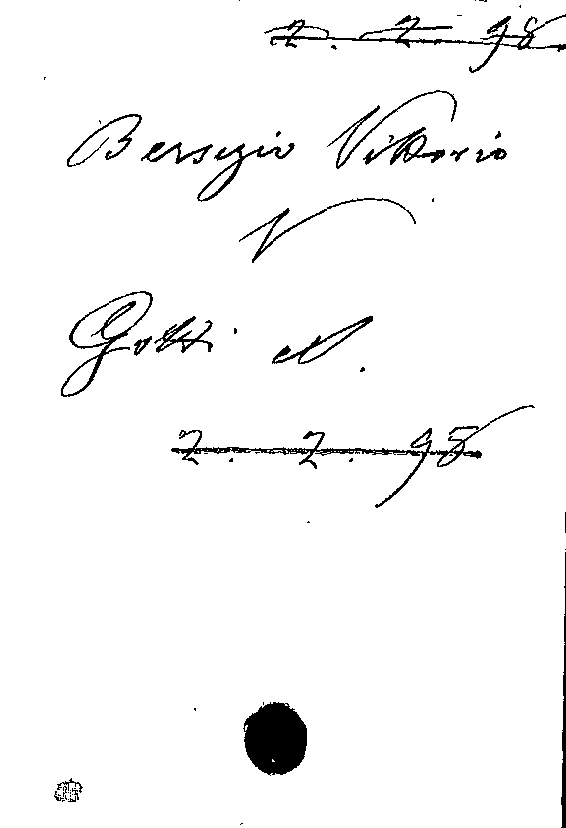 2. 2. 98
Bersezio Vittorio
V
Gotti A.
2. 2. 98